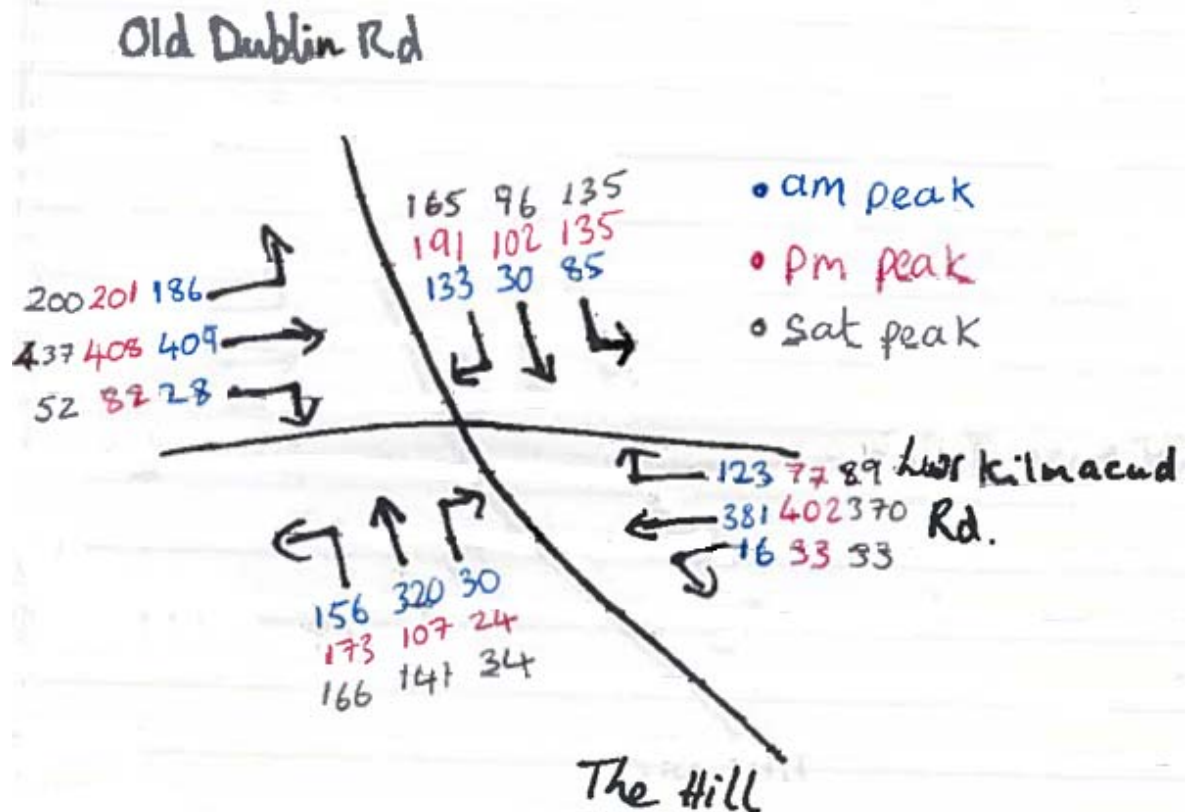 Old Dublin Rd
165 96 135
191 102 135
133 30 85
• am peak
• pm peak
• sat peak
200 201 186
437 408 409
52 82 28
123 77 89 Lwr Kilmacud
381 402 370 Rd.
16 33 33
156 320 30
173 107 24
166 141 34
The Hill